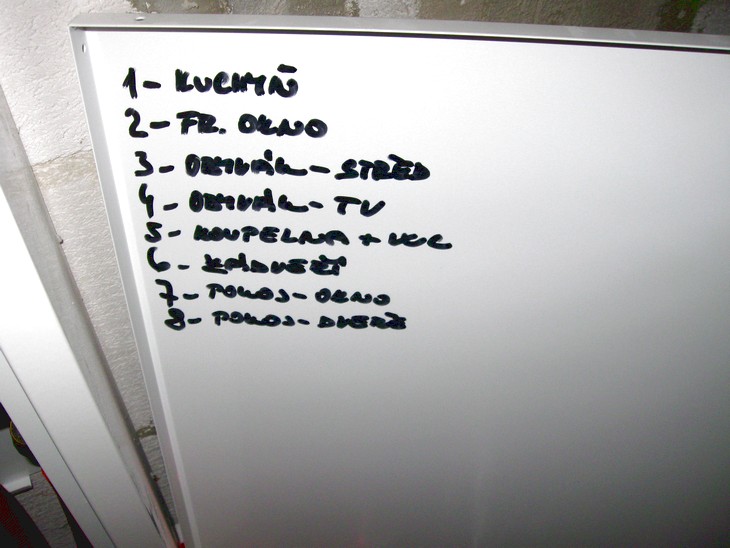 1 - KUCHYŇ
2 - FR. OKNO
3 - OBÝVÁK - STŘED
4 - OBÝVÁK - TV
5 - KOUPELNA + WC
6 - ZÁDVEŘÍ
7 - POKOJ - OKNO
8 - POKOJ - DVEŘE